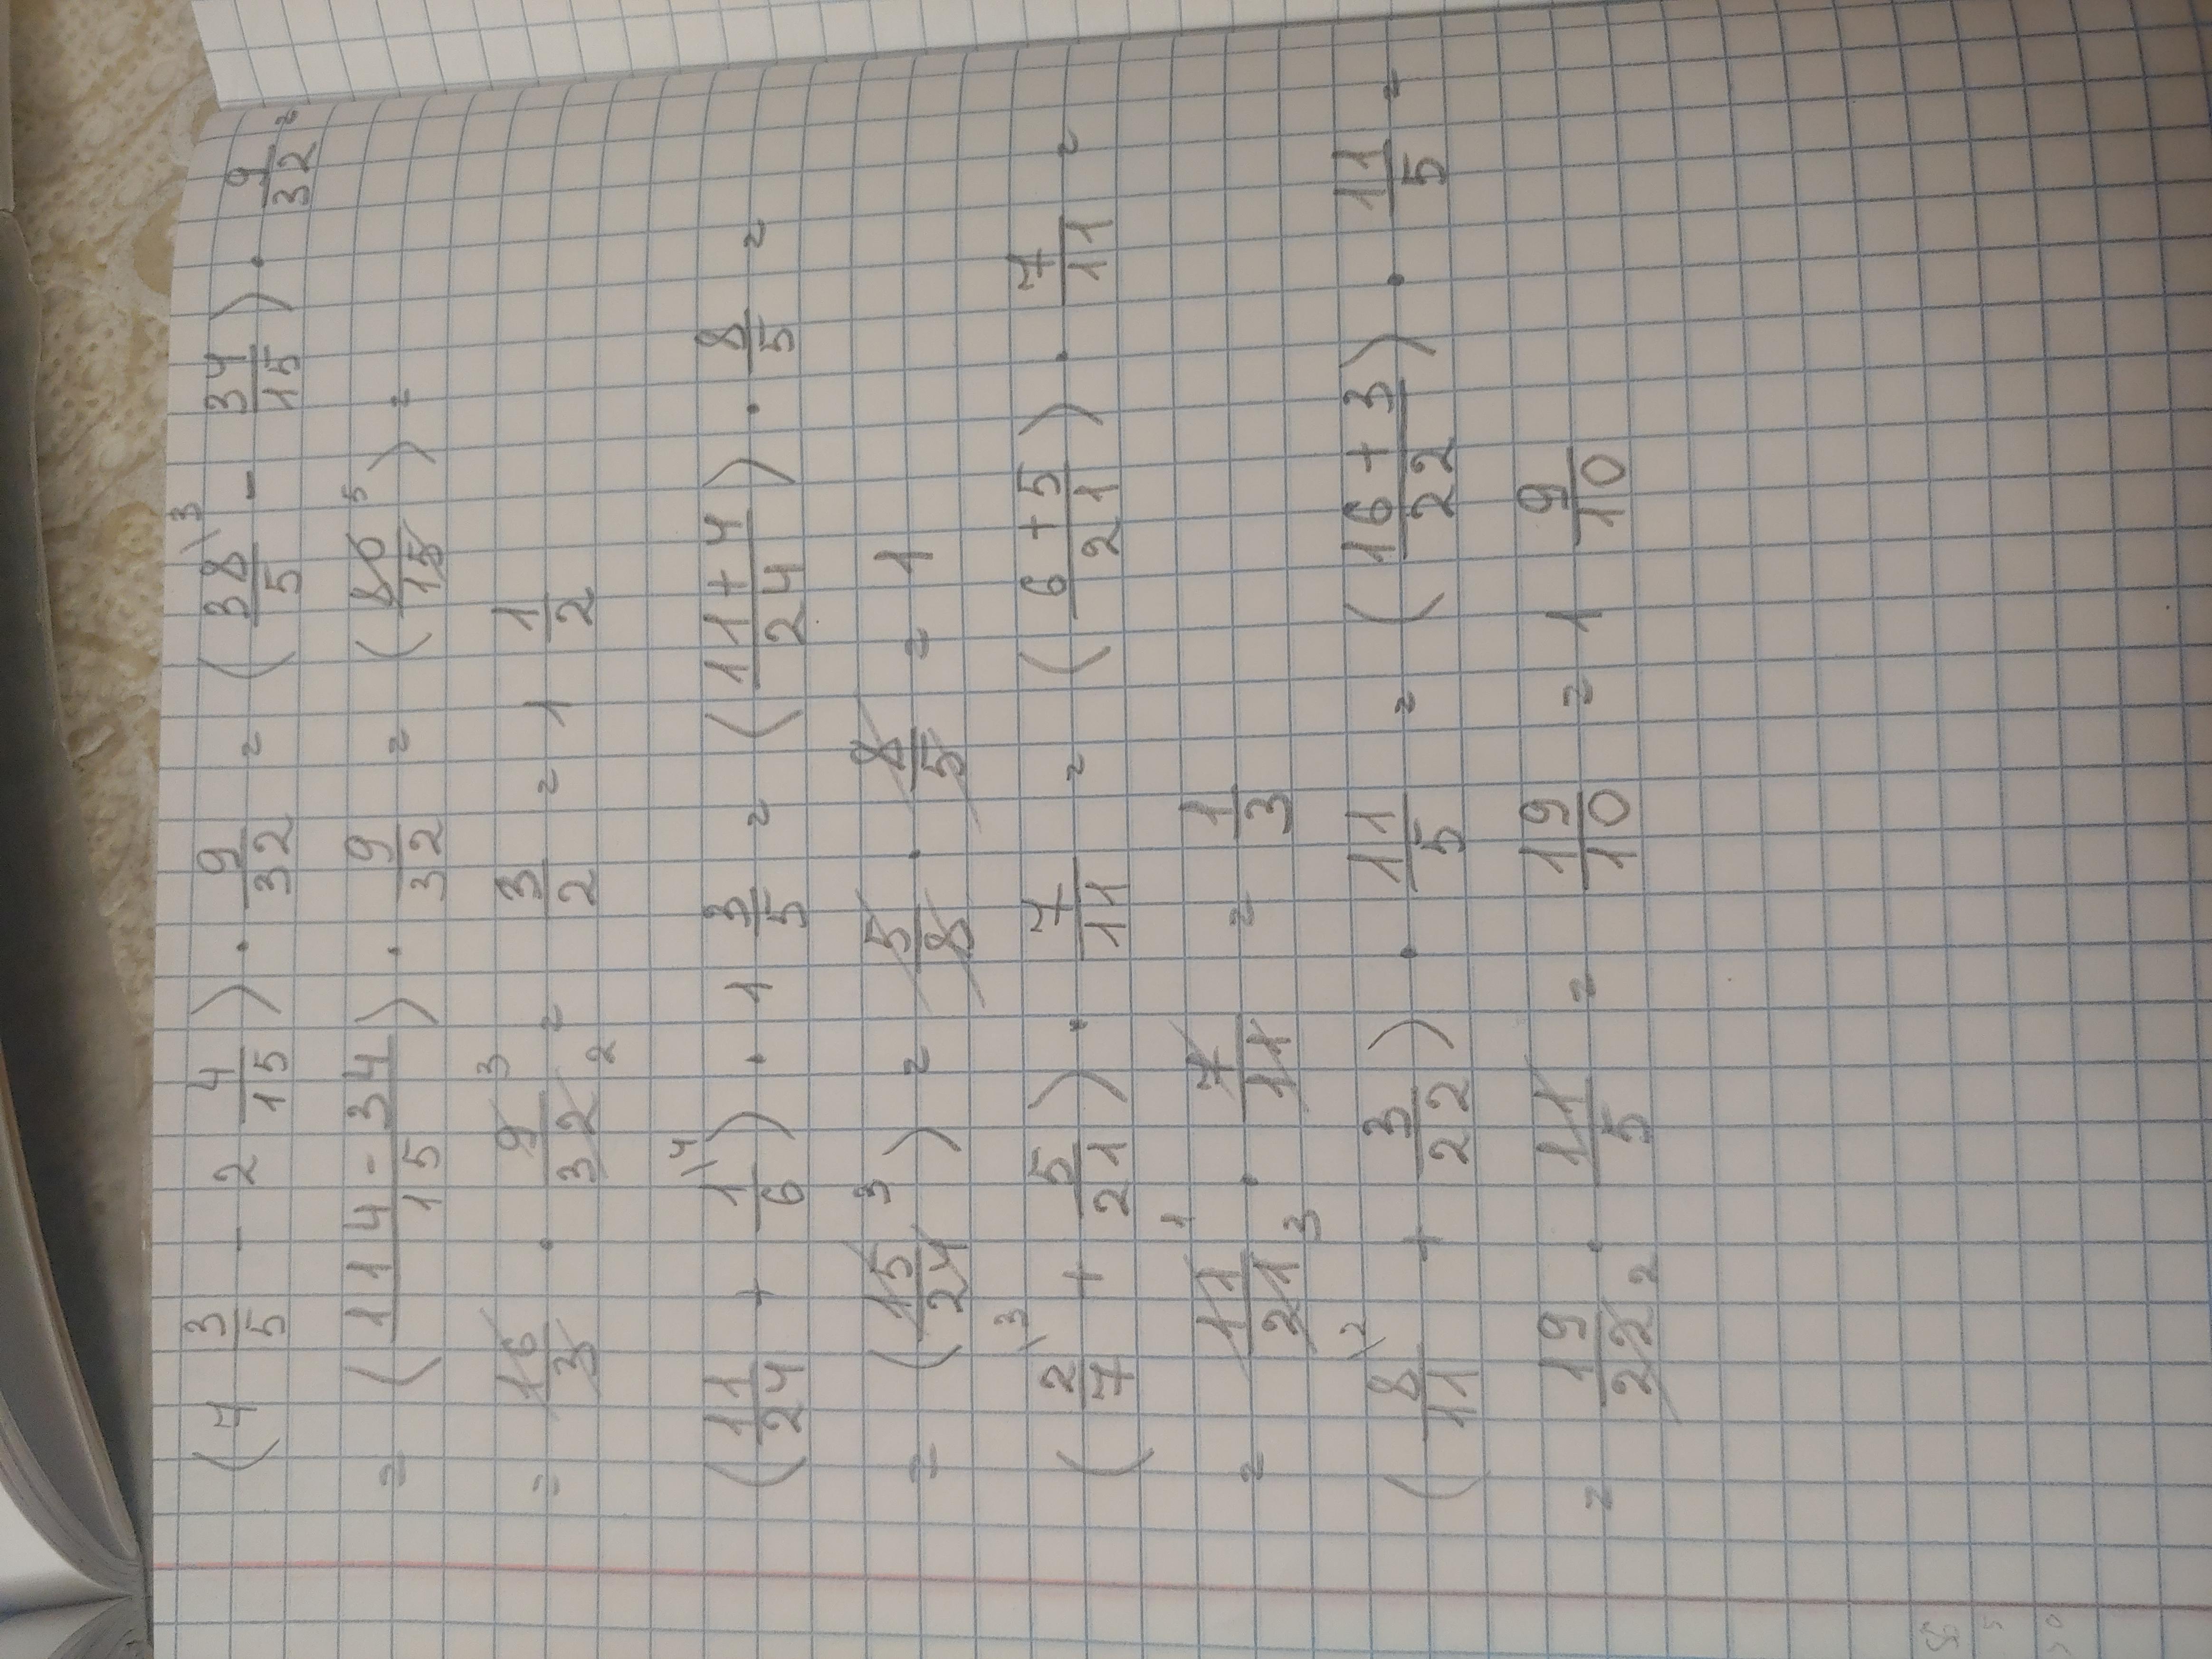 (7 3/5 - 2 4/15) · 9/32 = (38/5 \3 - 34/15) · 9/32 =
= (114-34/15) · 9/32 = (80/15 5) =
= 16/3 · 9/32 3 2 = 3/2 = 1 1/2
(11/24 + 1/6 \4) · 1 3/5 = (11+4/24) · 8/5 =
= (15/24 3) = 5/8 · 8/5 = 1
(2/7 \3 + 5/21) · 7/11 = (6+5/21) · 7/11 =
= 11/21 1 3 · 7/11 = 1/3
(8/11 \2 + 3/22) · 11/5 = (16+3/22) · 11/5 =
= 19/22 2 · 11/5 = 19/10 = 1 9/10